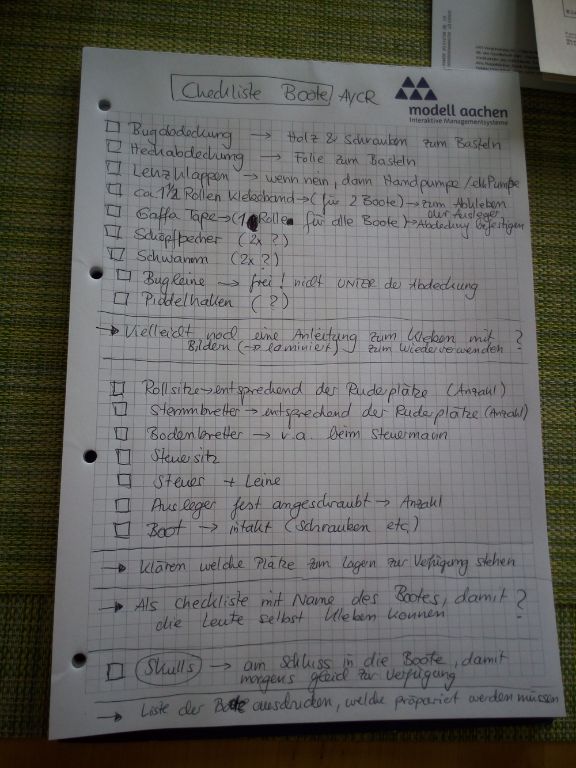 Checkliste Boote AVCR
modell aachen
Interaktive Managementsysteme
Bugabdeckung → Holz & Schrauben zum Basteln
Heckabdeckung → Folie zum Basteln
Lenzklappen → wenn nein, dann Handpumpe / elk Pumpe
ca. 1 1/2 Rollen Klebeband → (für 2 Boote) → zum Abkleben
der Ausleger
Gaffa Tape → (1 Rolle für alle Boote) → Abdeckung befestigen
Schöpfbecher (2x ?)
Schwamm (2x ?)
Bugleine → frei! nicht UNTER der Abdeckung
Piddelhaken (?)
→ Vielleicht noch eine Anleitung zum Kleben mit ?
Bildern (→ laminiert) zum Wiederverwenden
Rollsitze → entsprechend der Ruderplätze (Anzahl)
Stemmbretter → entsprechend der Ruderplätze (Anzahl)
Bodenbretter → v.a. beim Steuermann
Steuersitz
Steuer + Leine
Ausleger fest angeschraubt → Anzahl
Boot → intakt (Schrauben etc.)
→ Klären welche Plätze zum Lagern zur Verfügung stehen
→ Als Checkliste mit Name des Bootes, damit ?
die Leute selbst kleben können
Skulls → am Schluss in die Boote, damit
morgens gleich zur Verfügung
→ Liste der Boote ausdrucken, welche präpariert werden müssen